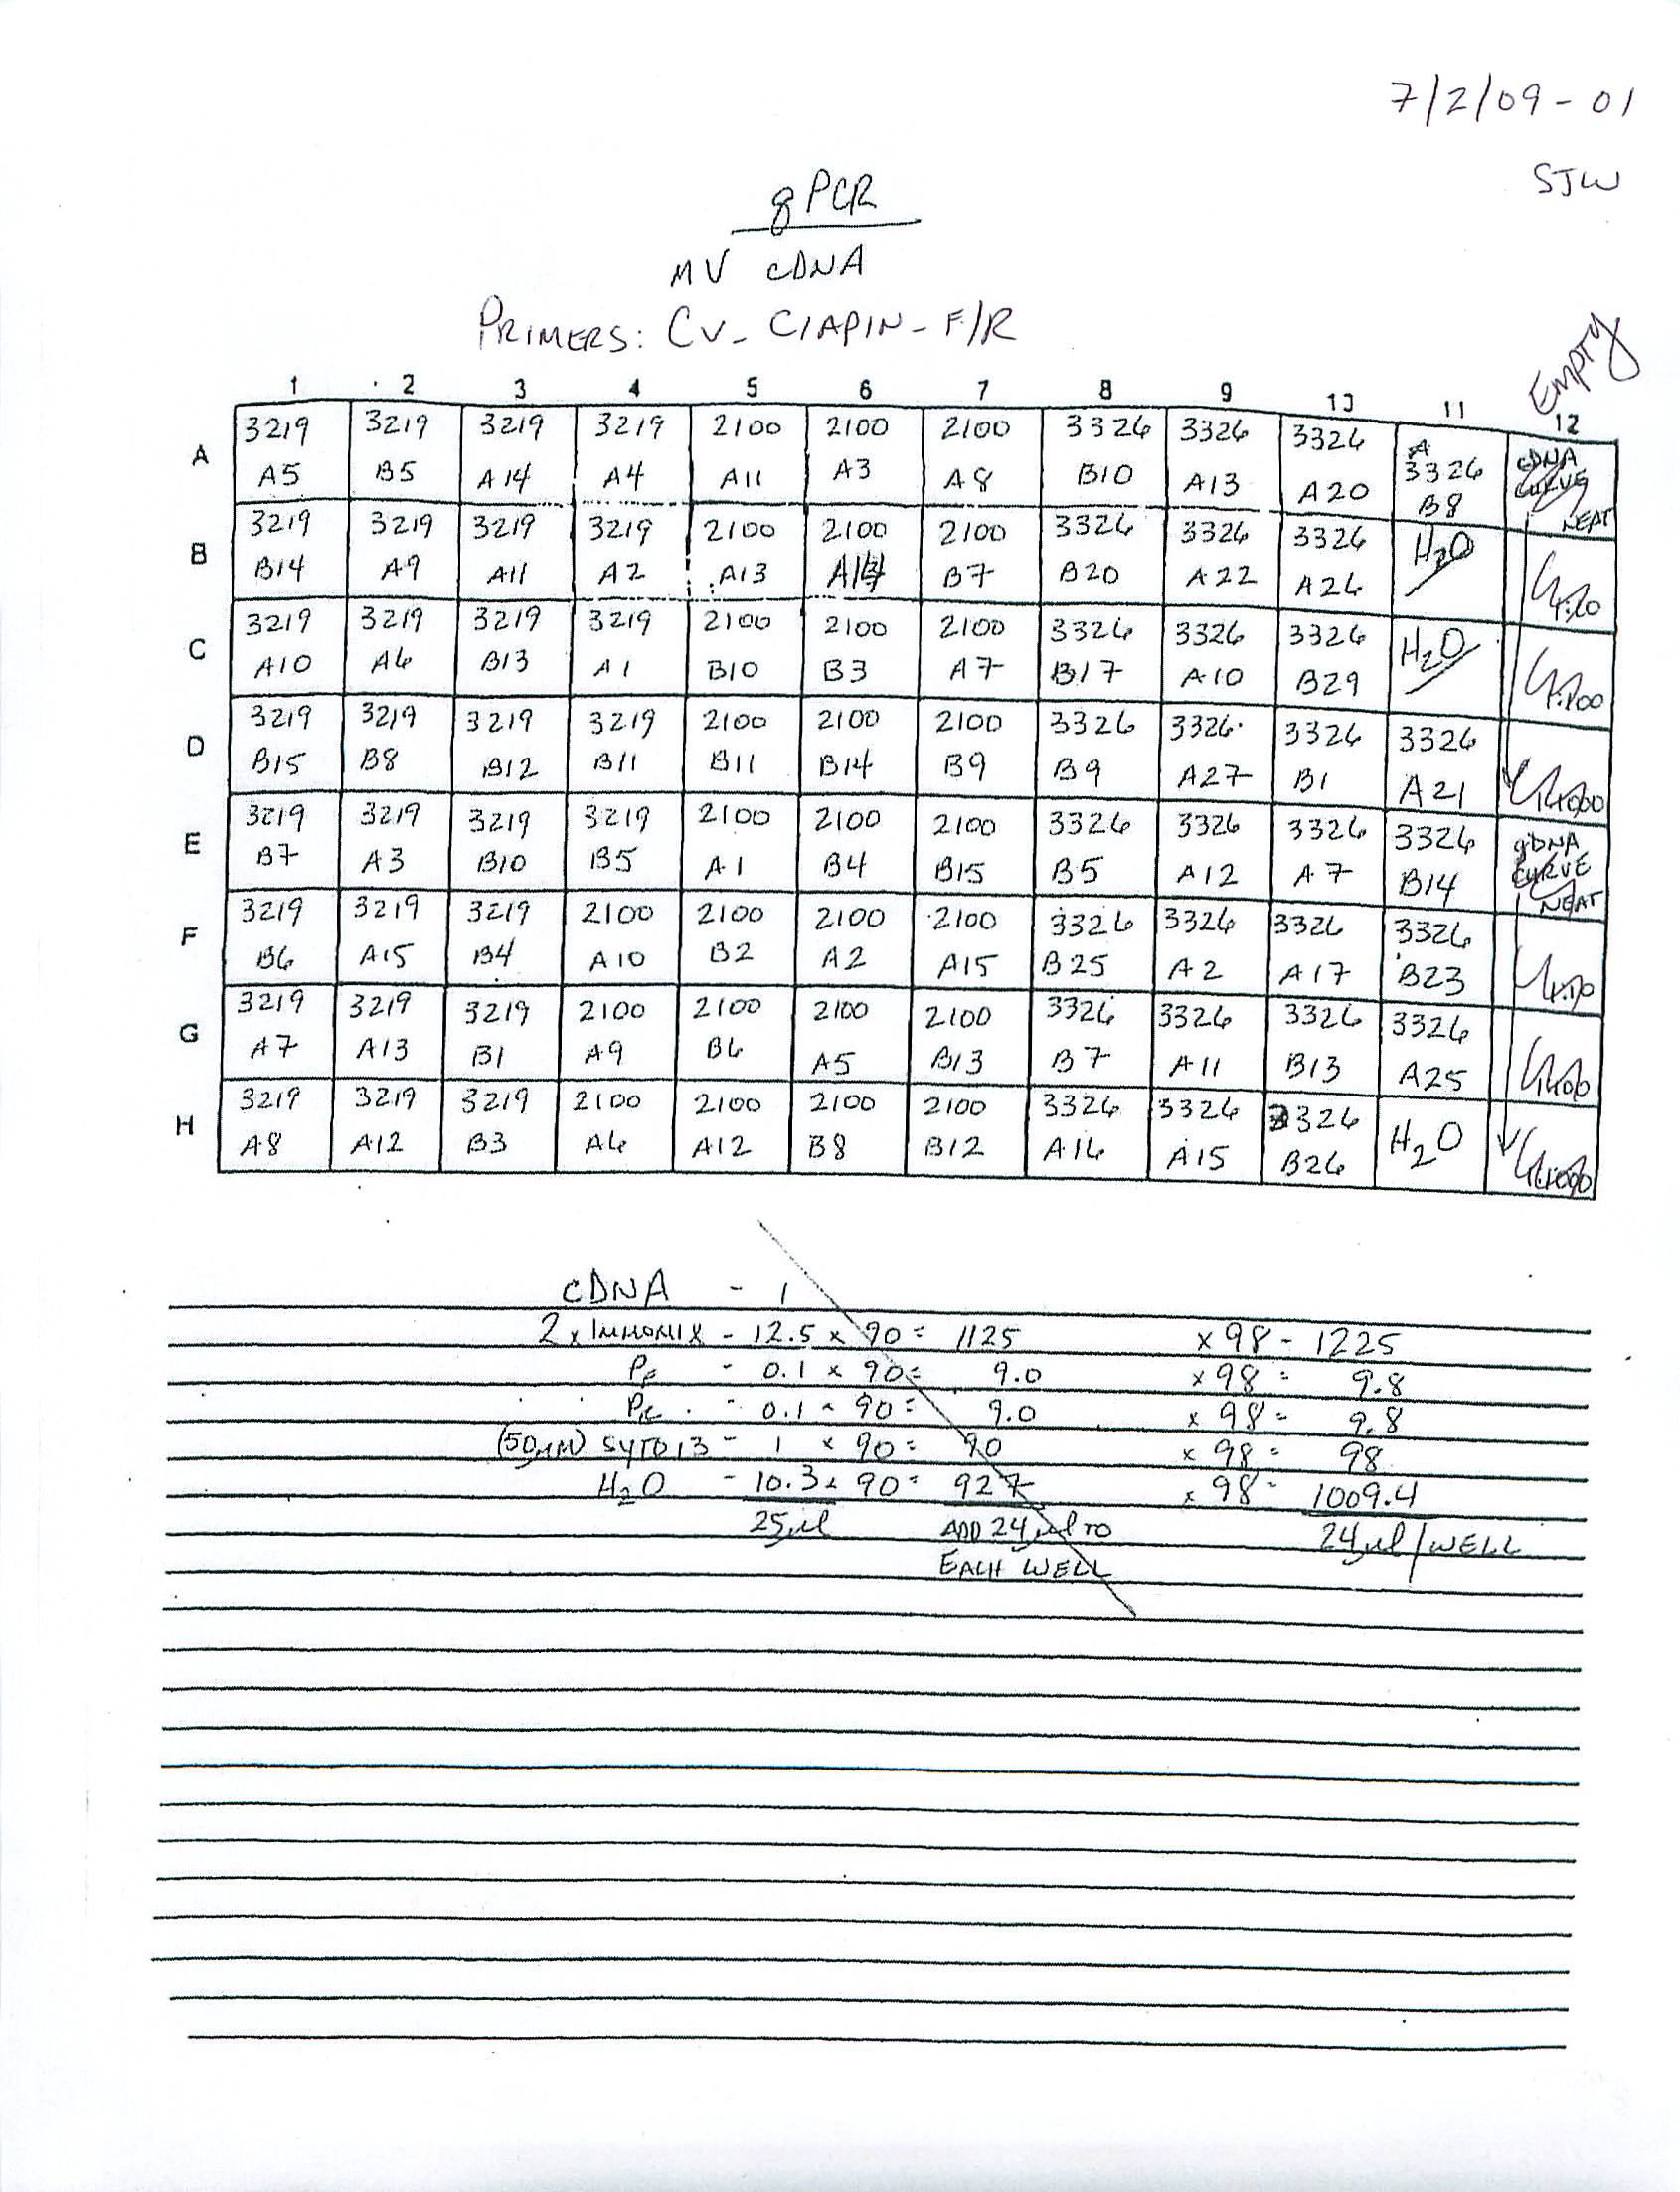 7/2/09 - 01
SJW
qPCR
MV cDNA
PRIMERS: CV_CIAPIN-F/R
Empty
1 2 3 4 5 6 7 8 9 10 11 12
A
3219 3219 3219 3219 2100 2100 2100 3326 3326 3326 3326 cDNA CURVE
A5 B5 A14 A4 A11 A3 A8 B10 A13 A20 B8 NEAT
B
3219 3219 3219 3219 2100 2100 2100 3326 3326 3326 H2O
B14 A9 A11 A2 A13 B7 B20 A22 A26 1:10
C
3219 3219 3219 3219 2100 2100 2100 3326 3326 3326 H2O
A10 A6 B13 A1 B10 B3 A7 B17 A10 B29 1:100
D
3219 3219 3219 3219 2100 2100 2100 3326 3326 3326 3326
B15 B8 B12 B11 B11 B14 B9 B9 A27 B1 A21 1:1000
E
3219 3219 3219 3219 2100 2100 2100 3326 3326 3326 3326 gDNA CURVE
B7 A3 B10 B5 A1 B4 B15 B5 A12 A7 B14 NEAT
F
3219 3219 3219 2100 2100 2100 2100 3326 3326 3326 3326
B6 A15 B4 A10 B2 A2 A15 B25 A2 A17 B23 1:10
G
3219 3219 3219 2100 2100 2100 2100 3326 3326 3326 3326
A7 A13 B1 A9 B6 A5 B13 B7 A11 B13 A25 1:100
H
3219 3219 3219 2100 2100 2100 2100 3326 3326 3326 H2O
A8 A12 B3 A6 A12 B8 B12 A16 A15 B26 1:1000
cDNA - 1
2x IMMOMIX - 12.5 x 90 = 1125 x 98 = 1225
PF - 0.1 x 90 = 9.0 x 98 = 9.8
PR - 0.1 x 90 = 9.0 x 98 = 9.8
(50µM) SYTO 13 - 1 x 90 = 90 x 98 = 98
H2O - 10.3 x 90 = 927 x 98 = 1009.4
25µl ADD 24µl TO 24µl/WELL
EACH WELL